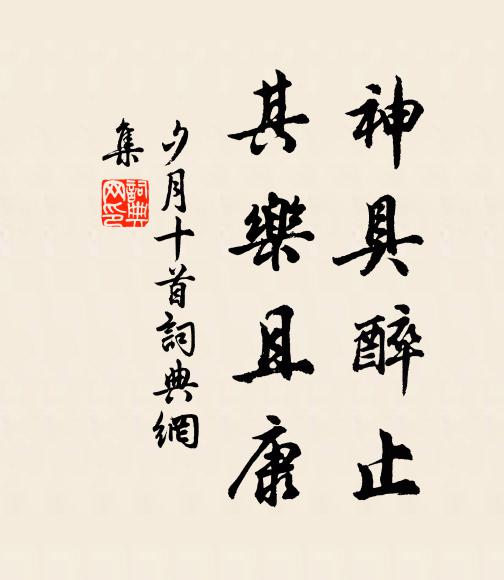 神具醉止
其樂且康
夕月十首詞典網
集
詞典网印